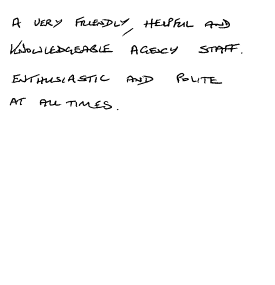 A VERY FRIENDLY, HELPFUL AND
KNOWLEDGEABLE AGENCY STAFF.
ENTHUSIASTIC AND POLITE
AT ALL TIMES.